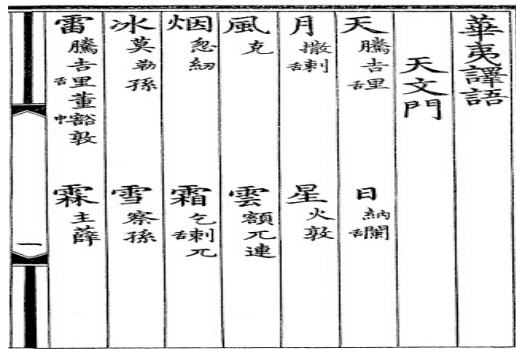 華夷譯語
天文門
天 騰吉舌里 日 納舌闌
月 撒舌剌 星 火敦
風 克 雲 額兀連
烟 忽紉 霜 乞舌剌兀
冰 莫勒孫 雪 察孫
雷 騰吉舌里董中豁敦 霖 主薛
一